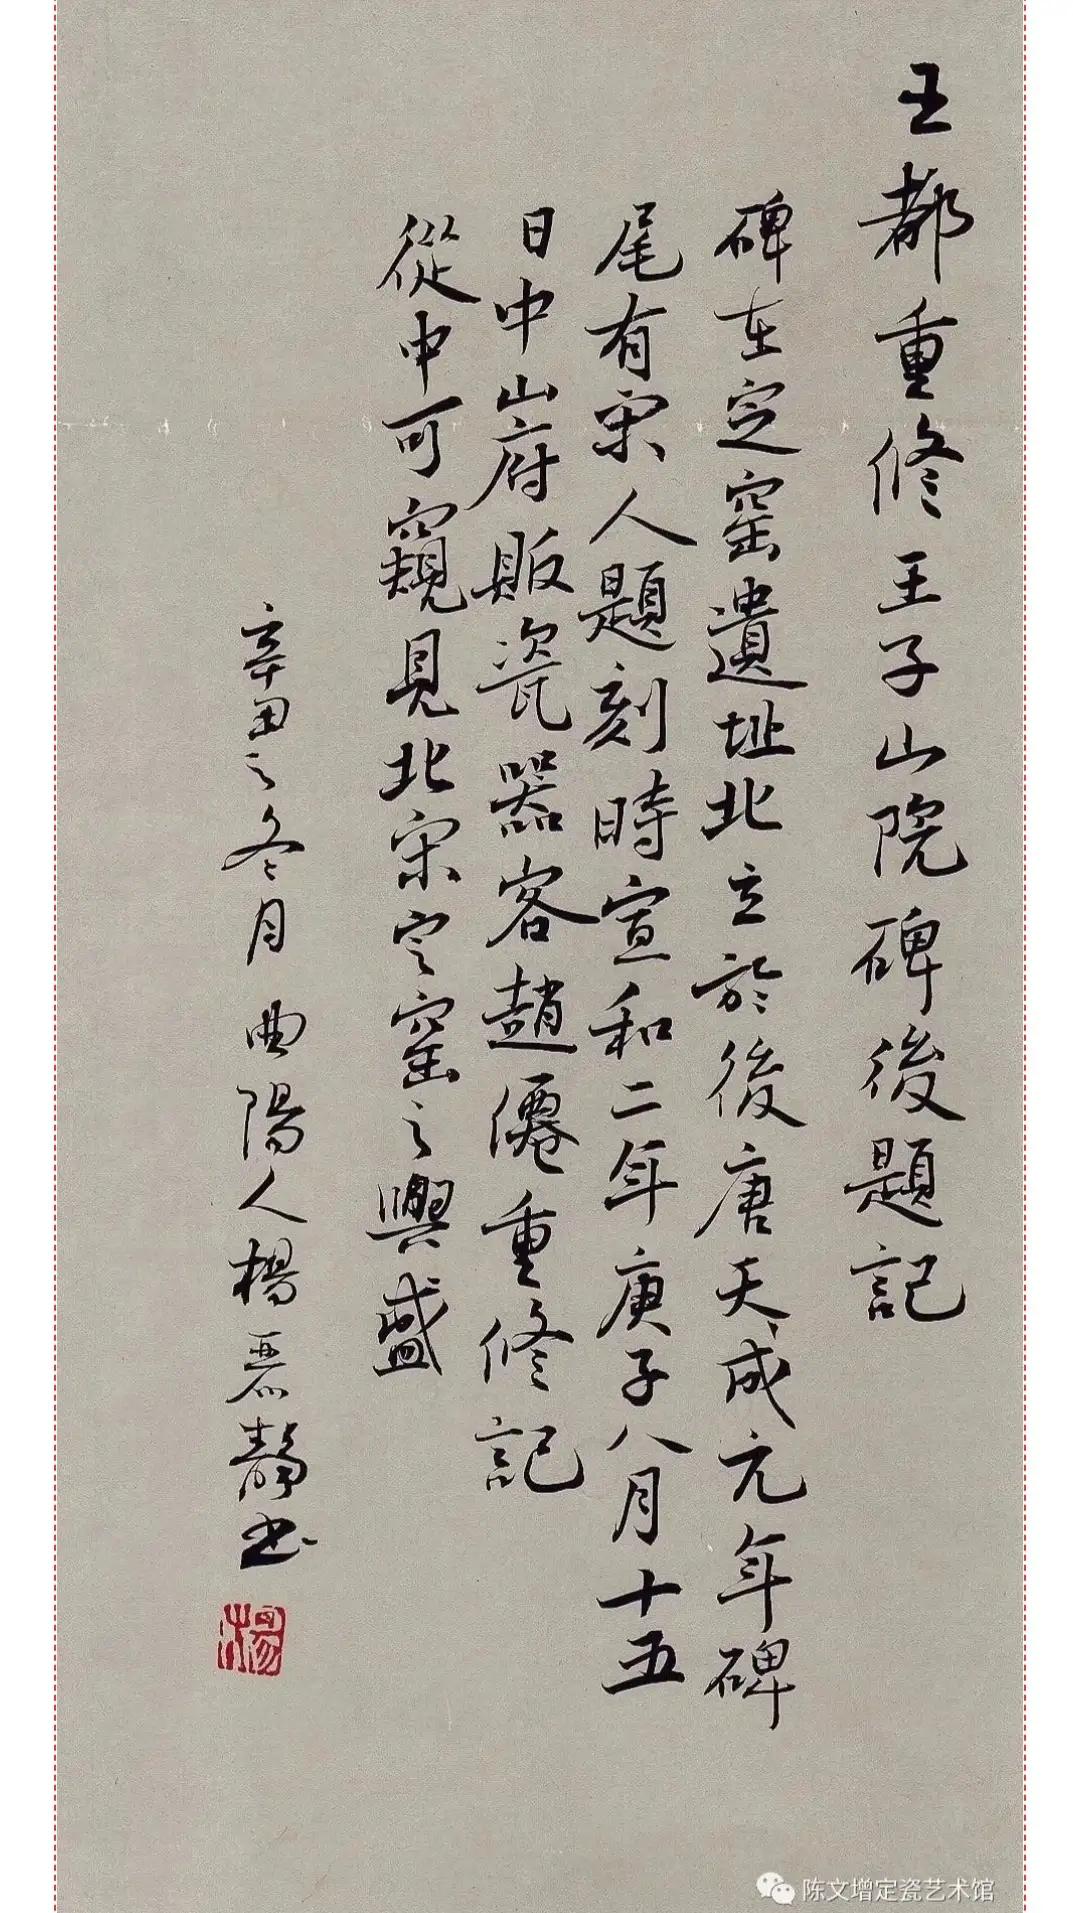 王都重修王子山院碑後題記
碑在定窑遺址北立於後唐天成元年碑
尾有宋人題刻時宣和二年庚子八月十五
日中山府販瓷器客趙僊重修記
從中可窺見北宋定窑之興盛
辛丑之冬月曲陽人楊丽静书
楊
陈文增定瓷艺术馆